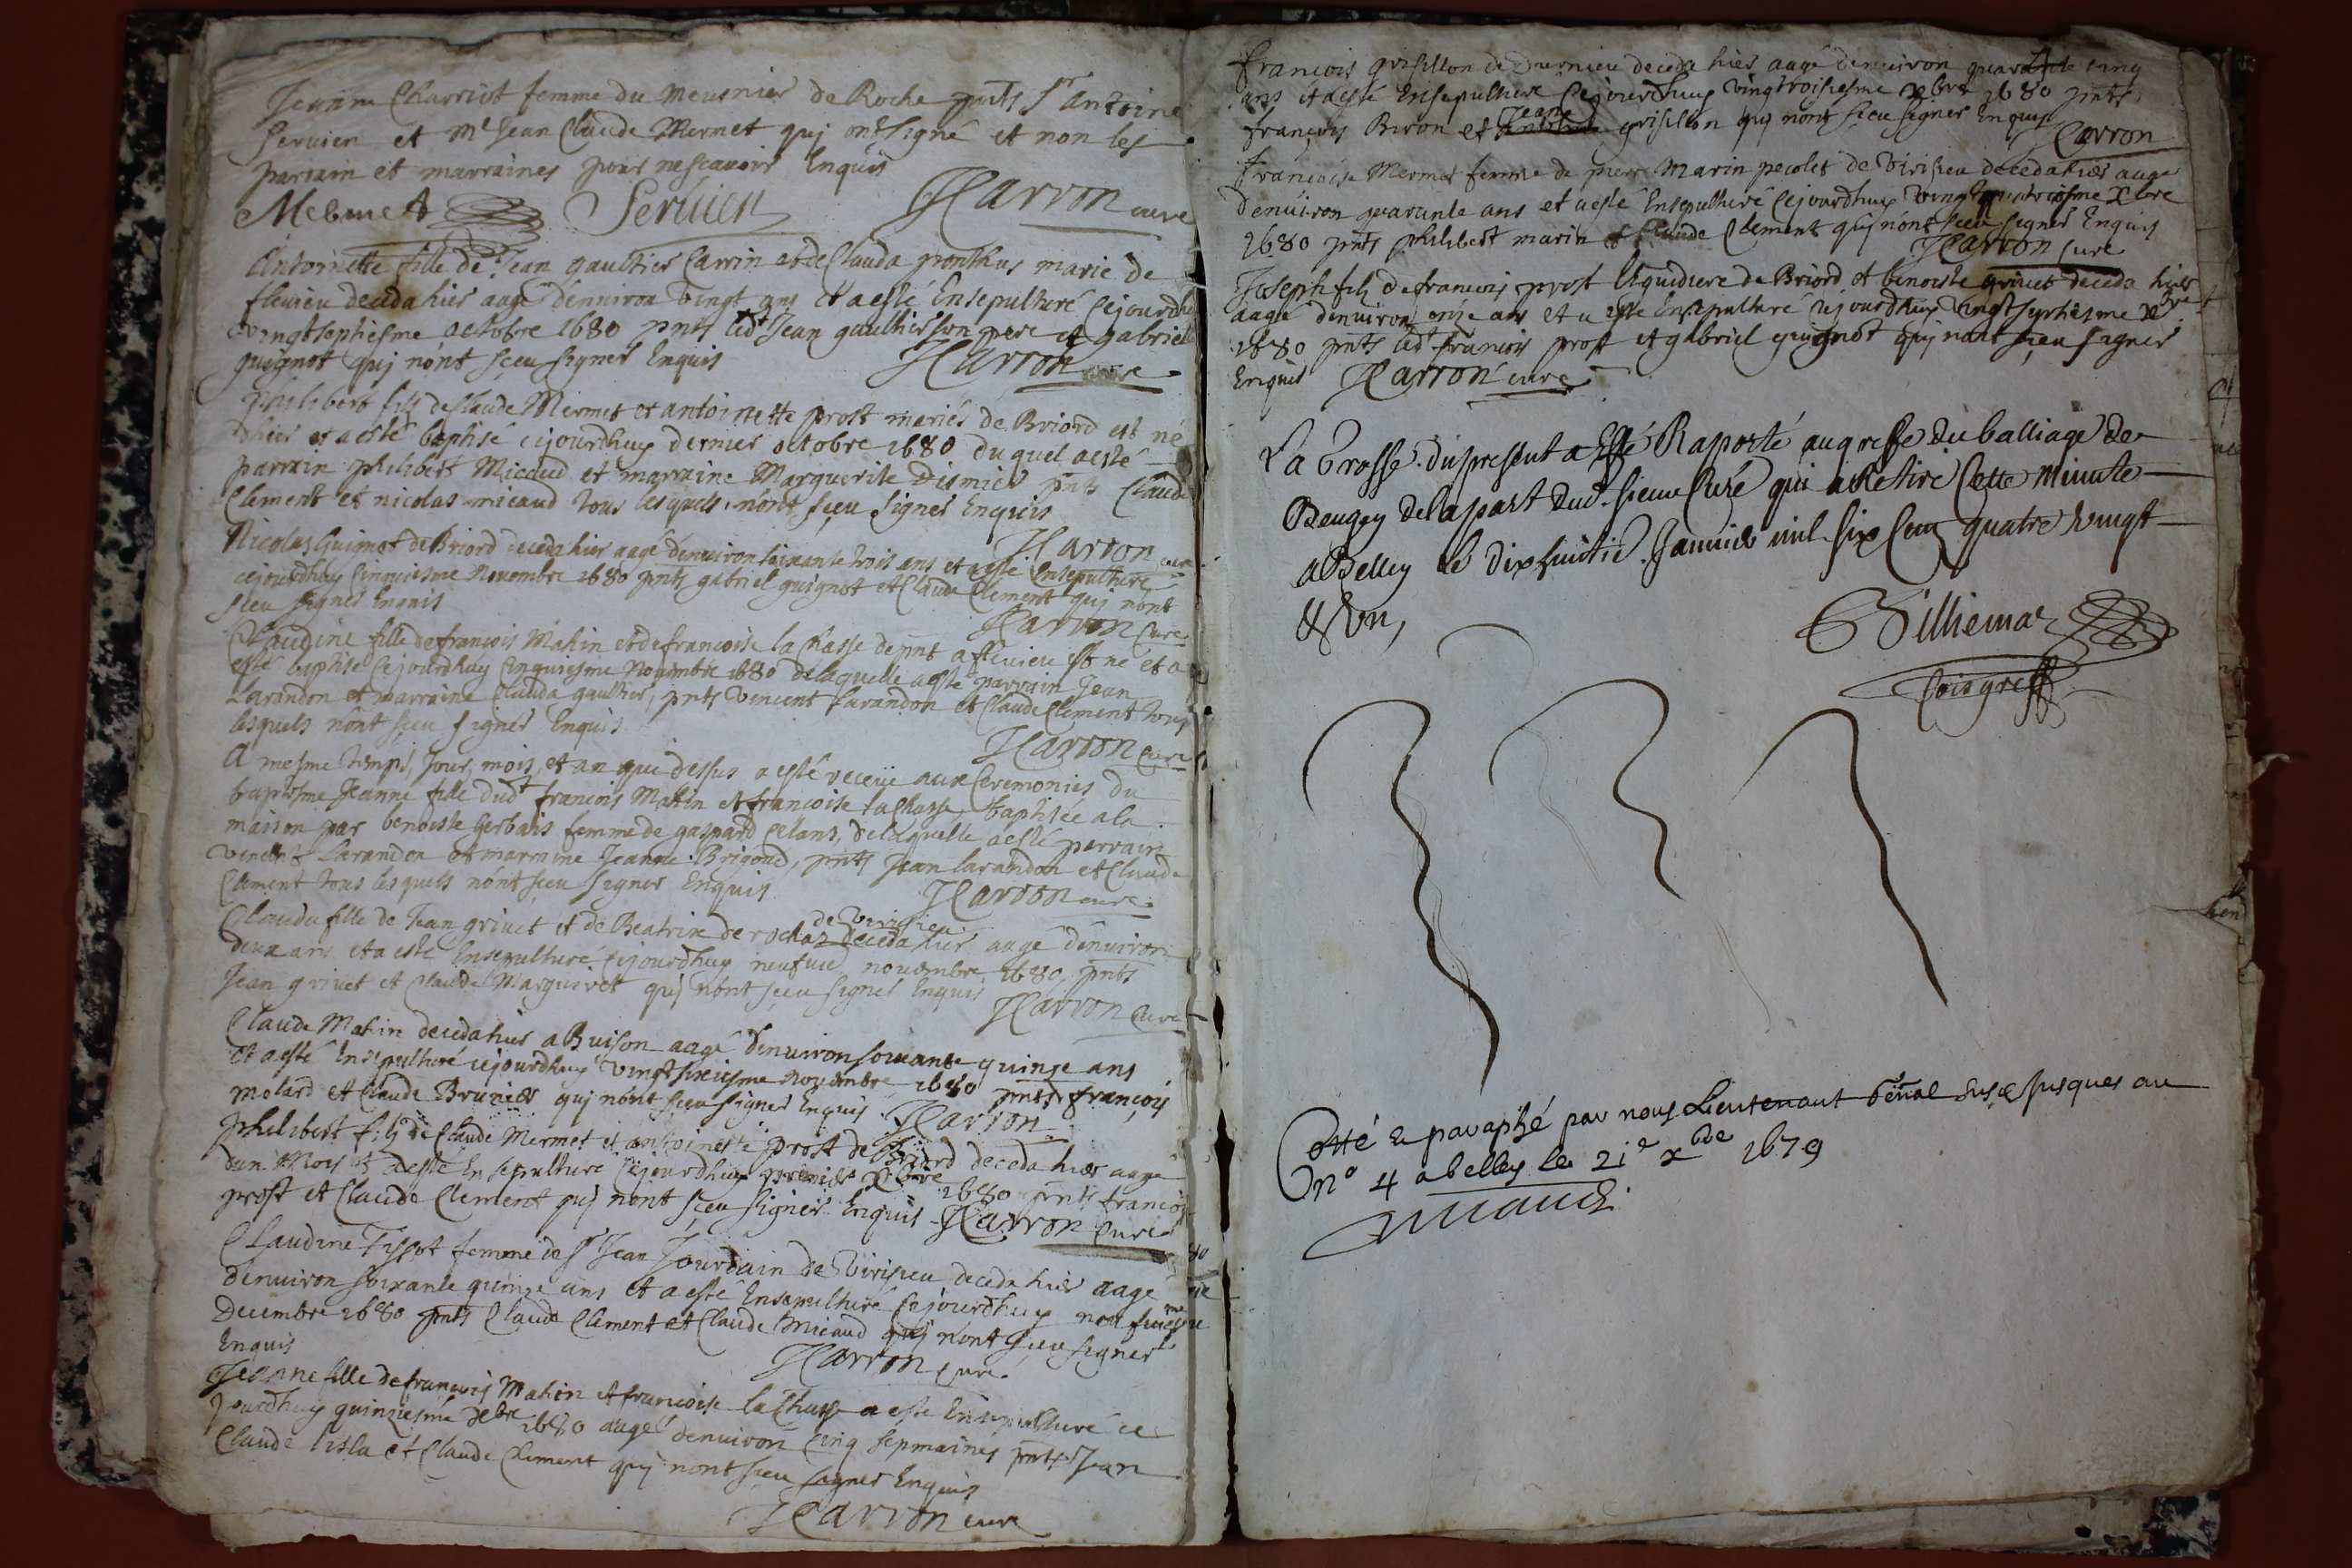 Jeanne Charriot femme du meusnier de Roche pnts Sr Antoine
Servier et Me Jean Claude Mermet quj ont signé et non les
parrain et marraines pour ne scavoir Enquis
Mermet Servier JCarron curé
Antoinette fille de Jean gaultier Carrin et de Clauda ponthus marié de
flevieu deceda hier aagé d'environ vingt ans et a esté Ensepulturé Cejourdhuy
vingtseptiesme octobre 1680 pnts ledt Jean gaultier son pere et gabriel
guignot quj nont sceu signer Enquis JCarron curé
philibert fils de Claude Mermet et antoinette prost mariés de Briord est né
dhier et a esté baptisé cejourdhuy dernier octobre 1680 duquel a esté
parrain philibert Micaud et marraine Marguerite Dismier pnts Claude
Clement et nicolas micaud tous lesquels nont sceu signer Enquis
JCarron curé
Nicolas Guignot de Briord deceda hier aagé denviron soixante trois ans et a esté Ensepulturé
cejourdhuy Cinquiesme Novembre 1680 pnts gabriel guignot et Claude Clement quj nont
sceu signer Enquis JCarron Curé
Claudine fille de francois Mathin et de francoise la Chasse de pnt a flevieu est né et a
esté baptisé Cejourdhuy Cinquiesme Novembre 1680 de laquelle a esté parrain Jean
Larandon et marraine Clauda gaultier, pnts Vincent Larandon et Claude Clement tous
lesquels nont sceu signer Enquis JCarron Curé
A mesme temps, Jour, mois, et an que dessus a esté receüe aux Ceremonies du
baptisme Jeanne fille dudt francois Mathin et francoise la Chasse, baptisée a la
maison par benoiste Gerbais femme de gaspard Celans, de laquelle a esté parrain
vincent Larandon et marraine Jeanne Brigoud, pnts Jean Larandon et Claude
Clement tous lesquels nont sceu signer Enquis JCarron curé
de Virisieu
Clauda fille de Jean grivet et de Beatrix de rochaz deceda hier aagé denviron
deux ans et a esté Ensepulturé Cejourdhuy neufvie novembre 1680, pnts
Jean grivet et Claude Marguiret quj nont sceu signer Enquis JCarron Curé
Claude Mathin deceda hier a Buison aagé denviron soixante quinze ans
et a esté Ensepulturé cejourdhuy vingt sixiesme Novembre 1680 pnts françois
molard et Claude Brunier quj nont sceu signer Enquis JCarron
philibert fils de Claude Mermet et antoinette prost de Briord deceda hier aagé
dun Mois et a esté Ensepulturé Cejourdhuy premier Xbre 1680 pnts francois
prost et Claude Clement quj nont sceu signer Enquis JCarron Curé
Claudine Tissot femme de Sr Jean Jourdain de Virisieu deceda hier aagé
denviron soixante quinze ans et a esté Ensepulturé Cejourdhuy neufviesme
Decembre 1680 pnts Claude Clement et Claude Micaud quj nont sceu signer
Enquis JCarron Curé
Jeanne fille de francois Mathin et francoise la Chasse a esté Ensepulturé ce
jourdhuy quinziesme Xbre 1680 aagé denviron Cinq sepmaines pnts Jean
Claude et Claude Clement quj nont sceu signer Enquis
JCarron curé
francois grisillon de deceda hier aagé denviron quarante cinq
ans et a esté Ensepulturé Cejourdhuy vingtroisiesme Xbre 1680 pnts
françois Biron et Jean grisillon quj nont sceu signer Enquis
Carron
francoise Mermet femme de pierre Marin pecolet de Virisieu deceda hier aagé
denviron quarante ans et a esté Ensepulturé Cejourdhuy vingtquatriesme Xbre
1680 pnts philibert marin et Claude Clement quj nont sceu signer Enquis
JCarron Curé
Joseph fils de francois prost de Briord et benoiste grivet deceda hier
aagé denviron onze ans et a esté Ensepulturé cejourdhuy vingtseptiesme Xbre
1680 pnts ledt francois prost et gabriel guignot quj nont sceu signer
Enquis JCarron curé
La Grosse du present a Esté Raporté au greffe du balliage de
Beugey de la part dud. sieur Curé qui a Retiré Cette Minute
a Belley le dix huitie. Janvier mil six Cent quatre vingt
& Un,
Villiemaz
Coisgreff
Cotté & paraphé par nous Lieutenant Genal Susd Jusques au
n° 4 a belley le 21e xbre 1679